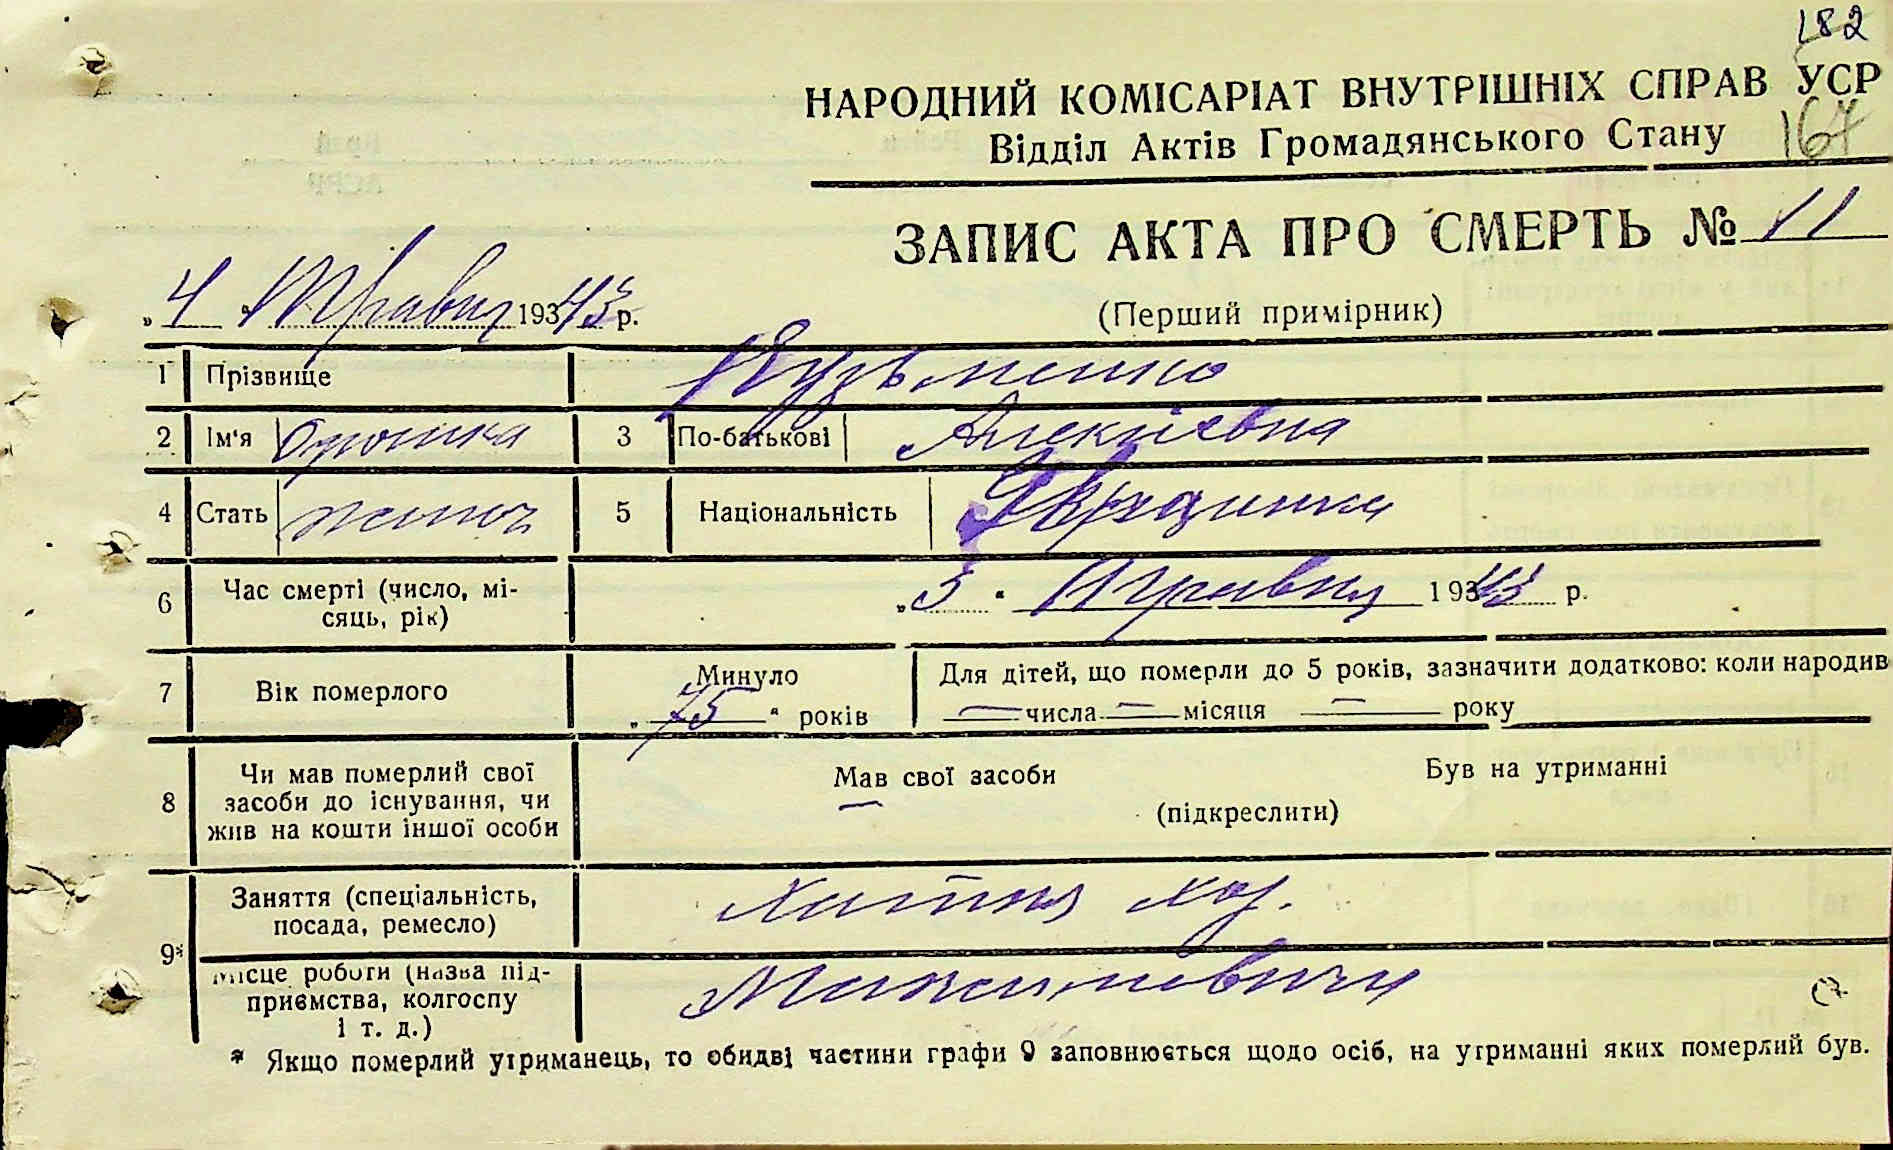 182
НАРОДНИЙ КОМІСАРІАТ ВНУТРІШНІХ СПРАВ УСР
Відділ Актів Громадянського Стану 167
ЗАПИС АКТА ПРО СМЕРТЬ № 11
„4“ Травня 1943 р.
(Перший примірник)
1 Прізвище Кузьменко
2 Ім‘я 3 По-батькові Алексіевна
4 Стать жиноч 5 Національність Украцинка
6 Час смерті (число, мі-
сяць, рік) „3“ Травня 1943 р.
7 Вік померлого Минуло „75“ років
Для дітей, що померли до 5 років, зазначити додатково: коли народив
— числа — місяця — року
8 Чи мав померлий свої
засоби до існування, чи
жив на кошти іншої особи
Мав свої засоби Був на утриманні
(підкреслити)
9* Заняття (спеціальність,
посада, ремесло) Хатня хаз.
Місце роботи (назва під-
приємства, колгоспу
і т. д.)
* Якщо померлий утриманець, то обидві частини графи 9 заповнюється щодо осіб, на утриманні яких померлий був.